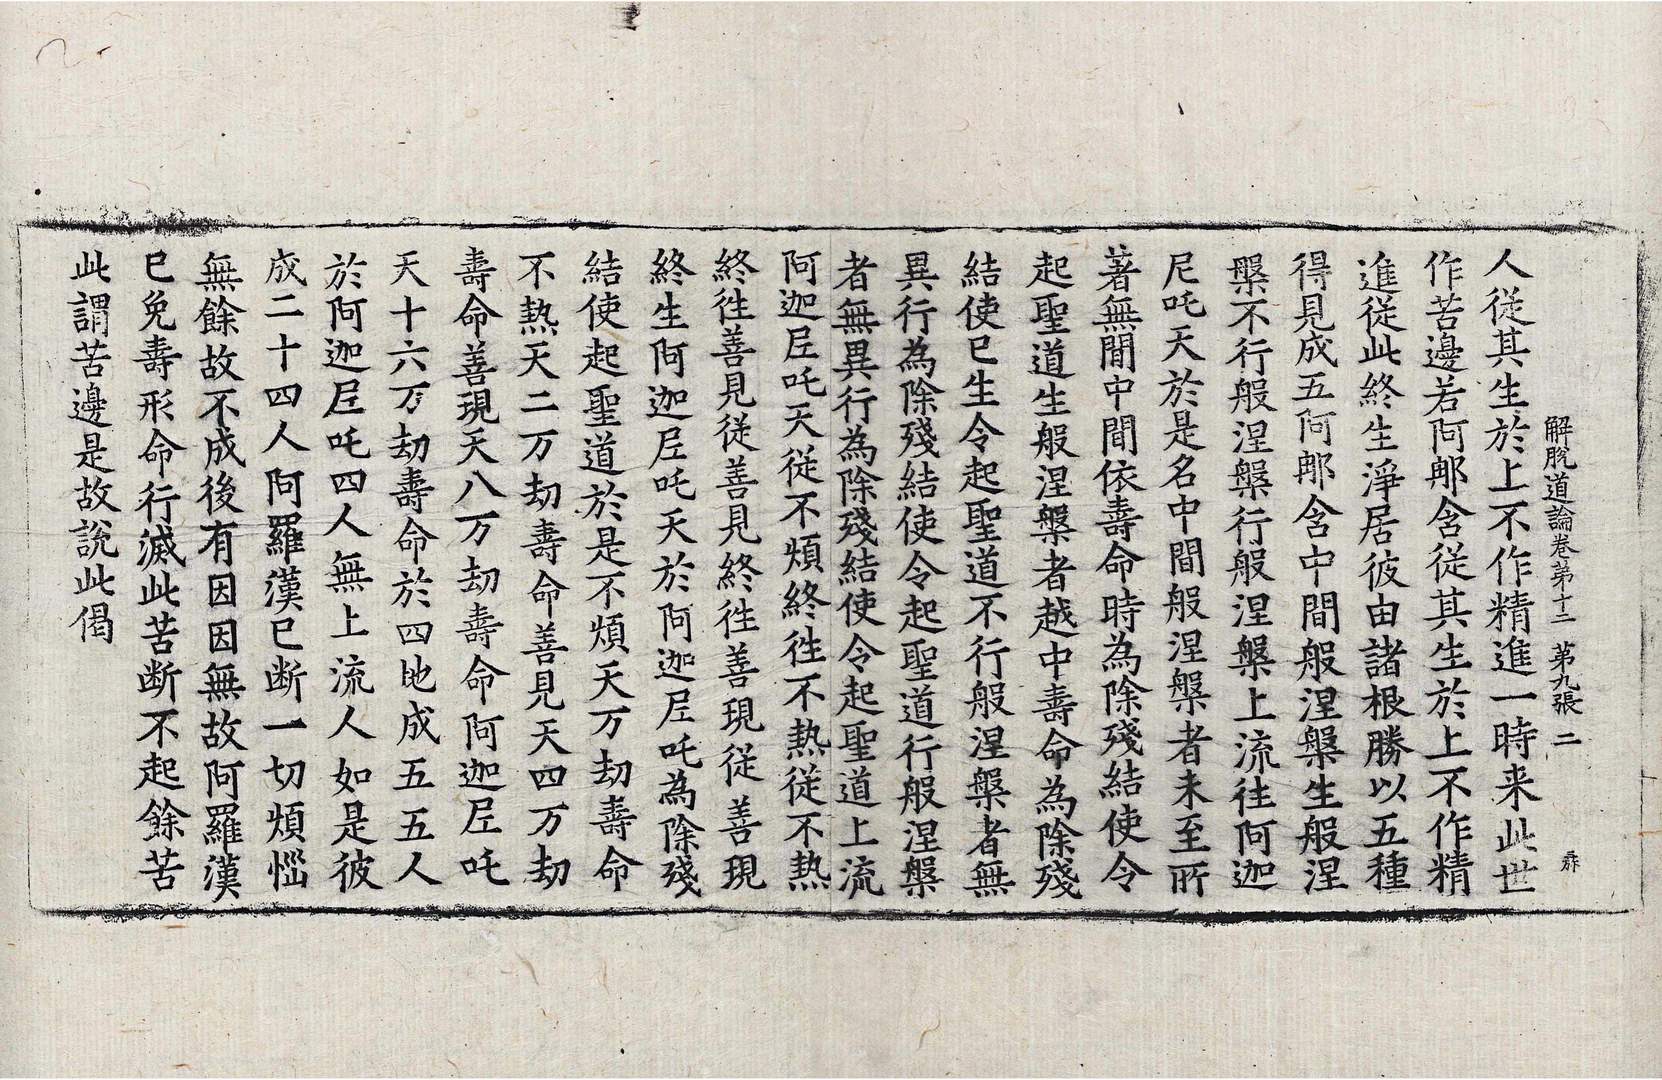 解脫道論卷第十二 第九張 二 彝
人從其生於上不作精進一時来此世
作苦邊若阿𨚗含從其生於上不作精
進從此終生淨居彼由諸根勝以五種
得見成五阿𨚗含中間般涅槃生般涅
槃不行般涅槃行般涅槃上流往阿迦
尼吒天於是名中間般涅槃者未至所
著無間中間依壽命時為除殘結使令
起聖道生般涅槃者越中壽命為除殘
結使已生令起聖道不行般涅槃者無
異行為除殘結使令起聖道行般涅槃
者無異行為除殘結使令起聖道上流
阿迦尼吒天從不煩終徃不熱從不熱
終徃善見從善見終徃善現從善現
終生阿迦尼吒天於阿迦尼吒為除殘
結使起聖道於是不煩天万劫壽命
不熱天二万劫壽命善見天四万劫
壽命善現天八万劫壽命阿迦尼吒
天十六万劫壽命於四地成五五人
於阿迦尼吒四人無上流人如是彼
成二十四人阿羅漢已断一切煩惱
無餘故不成後有因因無故阿羅漢
已免壽形命行滅此苦断不起餘苦
此謂苦邊是故說此偈